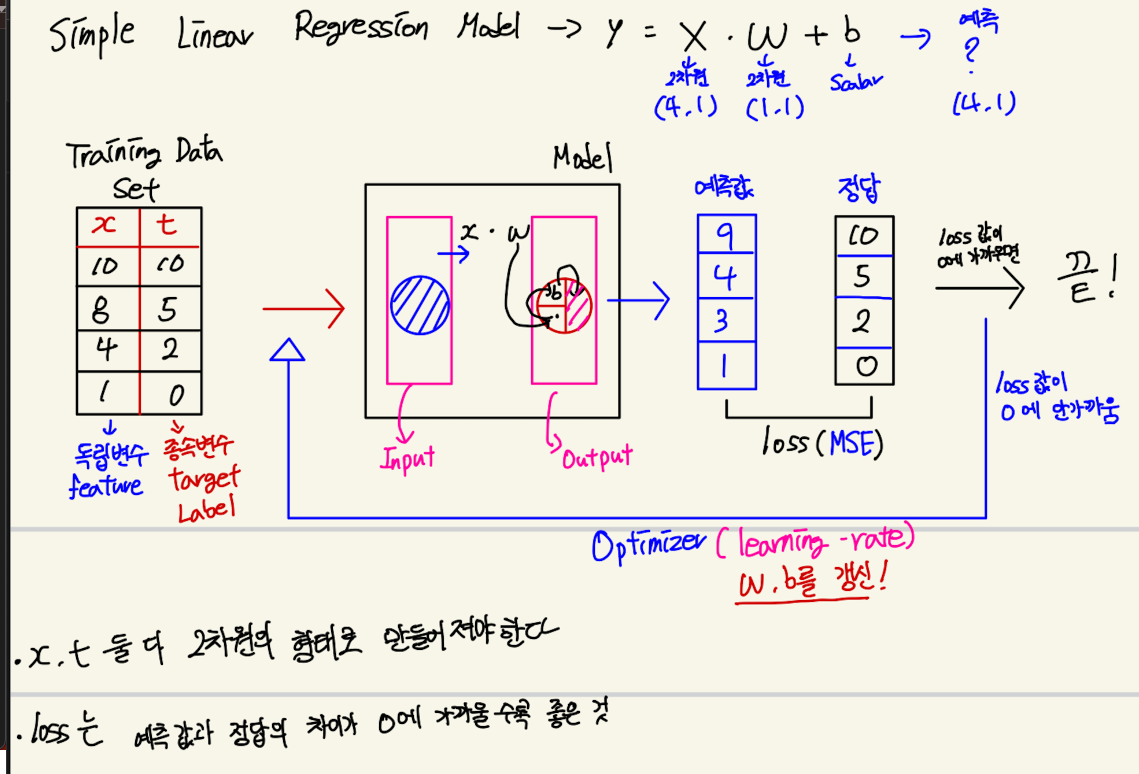 Simple Linear Regression Model → y = X · W + b → 예측
?
2차원 2차원 Scalar
(4,1) (1,1) (4,1)
Training Data Set
x t
10 10
8 5
4 2
1 0
독립변수 feature
종속변수 target Label
Model
x · w
b
Input
Output
예측값
9
4
3
1
정답
10
5
2
0
loss (MSE)
loss 값이
0에 가까우면
끝!
loss 값이
0에 안가까움
Optimizer (learning-rate)
W, b를 갱신!
· x, t 둘 다 2차원의 형태로 만들어져야 한다
· loss는 예측값과 정답의 차이가 0에 가까울수록 좋은 것